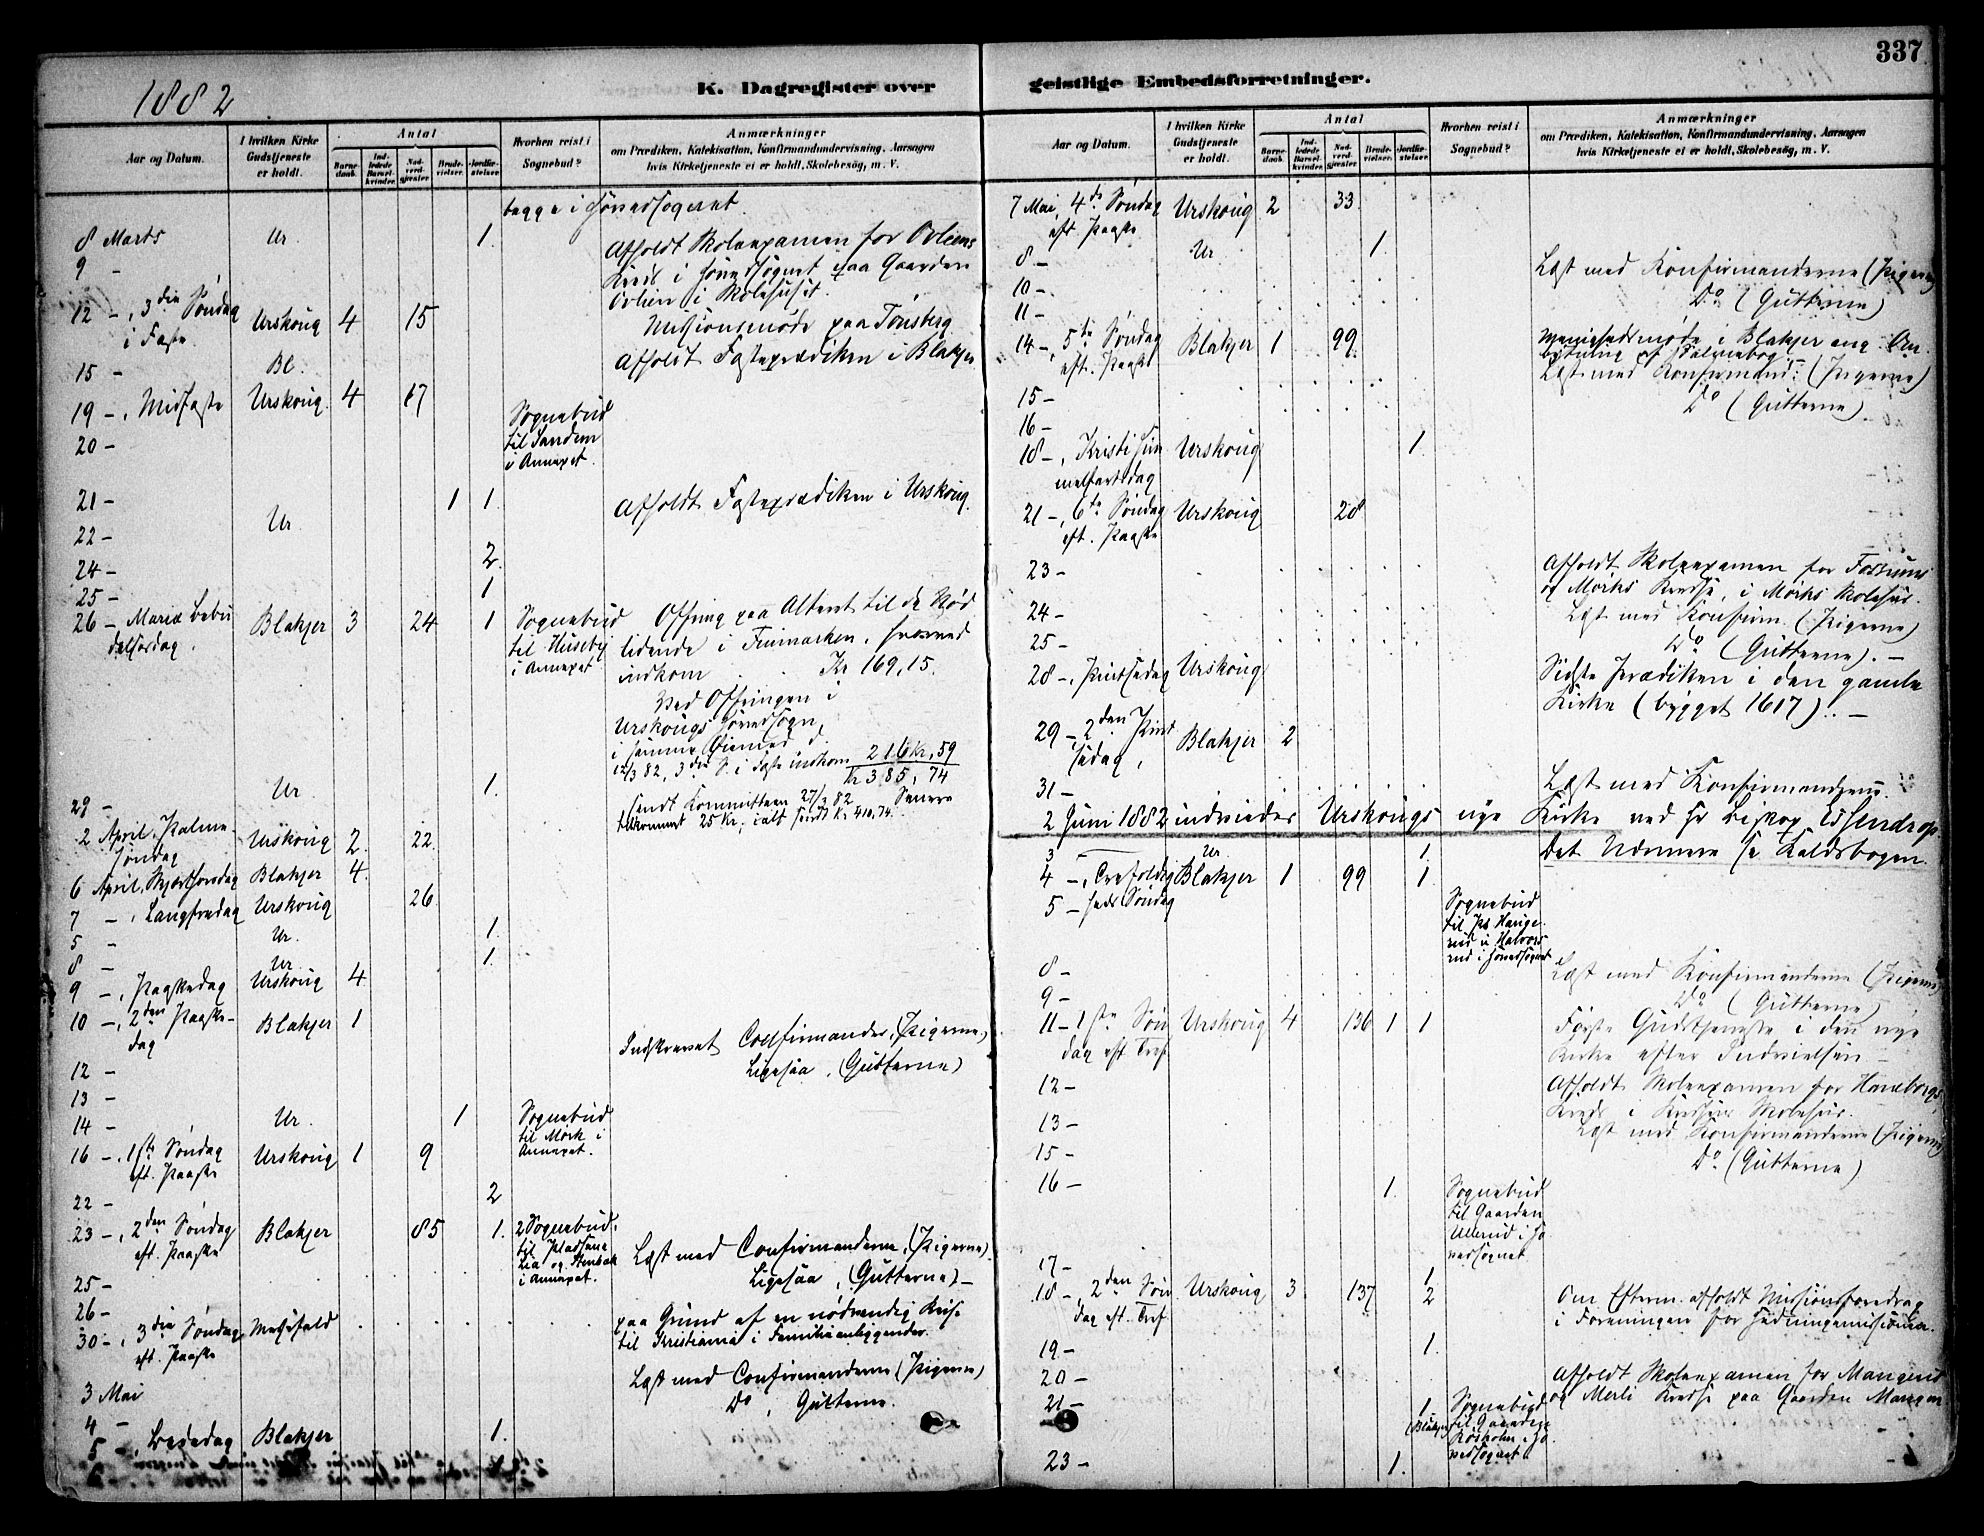 337
1882
K. Dagregister over geistlige Embedsforretninger.
Aar og Datum.
I hvilken Kirke Gudstjeneste er holdt.
Antal
Barnedaab.
Indledede Barselkvinder
Nadverdgjæster
Brudevielser.
Jordfæstelser
Hvorhen reist i Sognebud?
Anmærkninger
om Prædiken, Katekisation, Konfirmandundervisning, Aarsagen
hvis Kirketjeneste ei er holdt, Skolebesøg, m. V.
begge i Hovedsognet.
8 Marts Ur. 1.
9 - Afholdt Skoleexamen for
Kreds i Hovedsognet paa Gaarden
i Skolehuset.
12 - , 3die Søndag i Faste Urskoug 4 15 Missionsmøde paa Tønsberg
15 - Bl. Afholdt Fasteprædiken i Blakjer
19 - , Midfaste Urskoug. 4 17
20 - Sognebud til i Annexet.
21 - 1 1.
22 - Ur. Afholdt Fasteprædiken i Urskoug.
24 - 2.
25 - 1
26 - Mariæ Bebudelsesdag. Blakjer 3 24 1 Sognebud til Huseby i Annexet
Offring paa Alteret til de Nødlidende i Finmarken, hvorved
indkom Kr 169,15.
Ved Offringen i
Urskougs Hovedsogn,
i samme Øiemed d.
12/3 82, 3die S. i Faste indkom 216 kr, 59
Kr 385, 74
Sendt Kommitteen 27/3 82 Senere
tilkommet 25 Kr, ialt sendt Kr 410,74.
29 - Ur. 1.
2 April, Palmesøndag Urskoug 2. 22.
6 April, Skjærthorsdag Blakjer 4.
7 - , Langfredag Urskoug 26.
5 - Ur. 1.
8 - Ur 1.
9 - , Paaskedag Urskoug 4
10 - , 2den Paaskedag Blakjer 1
12 - Indskrevet Confirmander, (Pigerne)
13 - Ligesaa, (Gutterne)
14 - Ur. 1 Sognebud til Mørk i Annexet.
16 - , 1ste Søndag eft. Paaske Urskoug 1 9
22 - 2
23 - , 2den Søndag eft. Paaske Blakjer 85 1. 2 Sognebud, til Pladsene Lia og i Annexet.
25 - Læst med Confirmanderne, (Pigerne)
26 - Ligesaa, (Gutterne) -
30 - , 3die Søndag eft. Paaske Messefald paa Grund af en nødvendig Reise
til Kristiania i Familieanliggender.
3 Mai Læst med Confirmanderne (Pigerne)
4 - Do, Gutterne.
5 - , Bededag Blakjer 1.
6 -
Aar og Datum.
I hvilken Kirke Gudstjeneste er holdt.
Antal
Barnedaab.
Indledede Barselkvinder
Nadverdgjæster
Brudevielser.
Jordfæstelser
Hvorhen reist i Sognebud?
Anmærkninger
om Prædiken, Katekisation, Konfirmandundervisning, Aarsagen
hvis Kirketjeneste ei er holdt, Skolebesøg, m. V.
7 Mai, 4de Søndag eft. Paaske Urskoug 2 33
8 - Ur 1.
10 - Læst med Konfirmanderne (Pigerne)
11 - Do. (Gutterne)
14 - , 5te Søndag eft. Paaske Blakjer 1 99. Menighedsmøde i Blakjer ang.
af Salmebog -
15 - Læst med Konfirmand: (Pigerne)
16 - Do (Gutterne)
18 - , Kristi Himmelfartsdag Urskoug 1
21 - , 6te Søndag eft. Paaske Urskoug 28
23 - Afholdt Skoleexamen for Fossums
og Mørks Kredse, i Mørks Skolehus.
24 - Læst med Konfirm. (Pigerne)
25 - Do (Gutterne). -
28 - , Pintsedag Urskoug Sidste Prædiken i den gamle
Kirke (bygget 1617). -
29 - 2den Pindsedag, Blakjer 2
31 - Læst med Konfirmanderne.
2 Juni 1882 indviedes Urskougs nye Kirke ved Hr Biskop Essendrop.
Det Nærmere se Kaldsbogen.
3 - Ur. 1.
4 - , Trefoldighedssøndag Blakjer 1 99 1
5 - Sognebud til i Hovedsognet
8 - Læst med Konfirmanderne (Pigerne)
9 - Do (Gutterne)
11 - 1ste Søndag eft Tref. Urskoug 4 136 1 1 Første Gudstjeneste i den nye
Kirke efter Indvielsen -
12 - Afholdt Skoleexamen for Haneborgs
Kreds i Kredsens Skolehus.
13 - Læst med Konfirmanderne (Pigerne)
15 - Do. (Gutterne)
16 - 1. Sognebud til Gaarden Ullerud i Hovedsognet
17 - 1
18 - , 2den Søndag eft. Tref Urskoug 3 137 2 Om Efterm. afholdt Missionsforedrag
i Foreningen for Hedningemissionen.
19 - 1.
20 - Afholdt Skoleexamen for Mangerud
og Merli Kredse paa Gaarden Mangerud
21 - 1. (Blakjer) Sognebud til Gaarden i Hovedsognet
23 - 1.